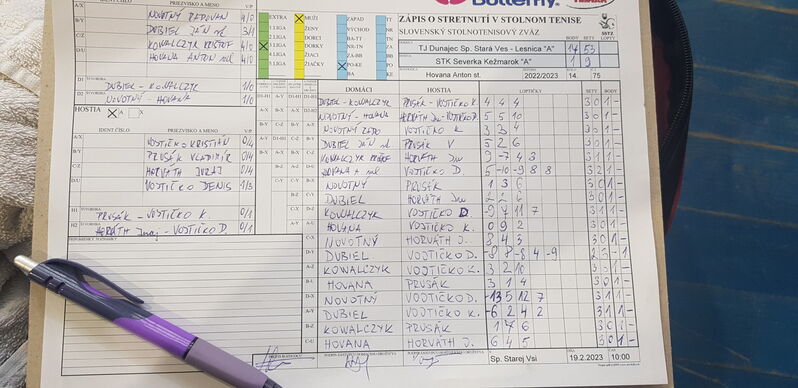 Butterfly
IDENT ČÍSLO PRIEZVISKO A MENO V/P
A/X NOVOTNÝ RADOVAN 4/0
B/Y DUBIEL JÁN ml 3/1
C/Z KOWALCZYK KRIŠTOF 4/0
D/U HOVANA ANTON ml 4/0
D1 ŠTVORHRA DUBIEL - KOWALCZYK 1/0
D2 NOVOTNÝ - HOVANA 1/0
HOSTIA A X
IDENT ČÍSLO PRIEZVISKO A MENO V/P
A/X VOJTIČKO KRISTIÁN 0/4
B/Y PRUSÁK VLADIMÍR 0/4
C/Z HORVÁTH JURAJ 0/4
D/U VOJTIČKO DENIS 1/3
H1 ŠTVORHRA PRUSÁK - VOJTIČKO K. 0/1
H2 HORVÁTH Juraj - VOJTIČKO D. 0/1
EXTRA MUŽI ZÁPAD TT
1.LIGA ŽENY VÝCHOD NR
2.LIGA DORCI BA-TT TN
3.LIGA DORKY NR-TN ZA
4.LIGA ŽIACI ZA-BB
5.LIGA ŽIAČKY PO-KE
BA KE
ZÁPIS O STRETNUTÍ V STOLNOM TENISE
SLOVENSKÝ STOLNOTENISOVÝ ZVÄZ
SSTZ
BODY SETY LOPTY
TJ Dunajec Sp. Stará Ves - Lesnica "A" 17 53
STK Severka Kežmarok "A" 1 9
Hovana Anton st. 2022/2023 14. 75
DOMÁCI HOSTIA LOPTIČKY SETY BODY
DUBIEL-KOWALCZYK PRUSÁK-VOJTIČKO K. 4 4 4 3 0 1 -
NOVOTNÝ - HOVANA HORVÁTH Jur-VOJTIČKO D. 5 5 10 3 0 1 -
NOVOTNÝ RADO VOJTIČKO K 3 3 4 3 0 1 -
DUBIEL JÁN ml PRUSÁK V 5 2 6 3 0 1 -
KOWALCZYK KRIŠTOF HORVÁTH Jur 9 -7 4 3 3 1 1 -
HOVANA A ml VOJTIČKO D. 5 -10 -9 8 8 3 2 1 -
NOVOTNÝ PRUSÁK 1 3 6 3 0 1 -
DUBIEL HORVÁTH Jur 2 2 6 3 0 1 -
KOWALCZYK VOJTIČKO D. -9 4 11 7 3 1 1 -
HOVANA VOJTIČKO K. 0 9 2 3 0 1 -
NOVOTNÝ HORVÁTH J. 8 4 3 3 0 1 -
DUBIEL VOJTIČKO D. -8 8 -8 4 -9 2 3 - 1
KOWALCZYK VOJTIČKO K. 3 2 10 3 0 1 -
HOVANA PRUSÁK 3 1 4 3 0 1 -
NOVOTNÝ VOJTIČKO D. -13 5 12 7 3 1 1 -
DUBIEL VOJTIČKO K. -6 2 4 2 3 1 1 -
KOWALCZYK PRUSÁK 1 7 6 3 0 1 -
HOVANA HORVÁTH J. 6 4 5 3 0 1 -
Sp. Starej Vsi 19.2.2023 10:00